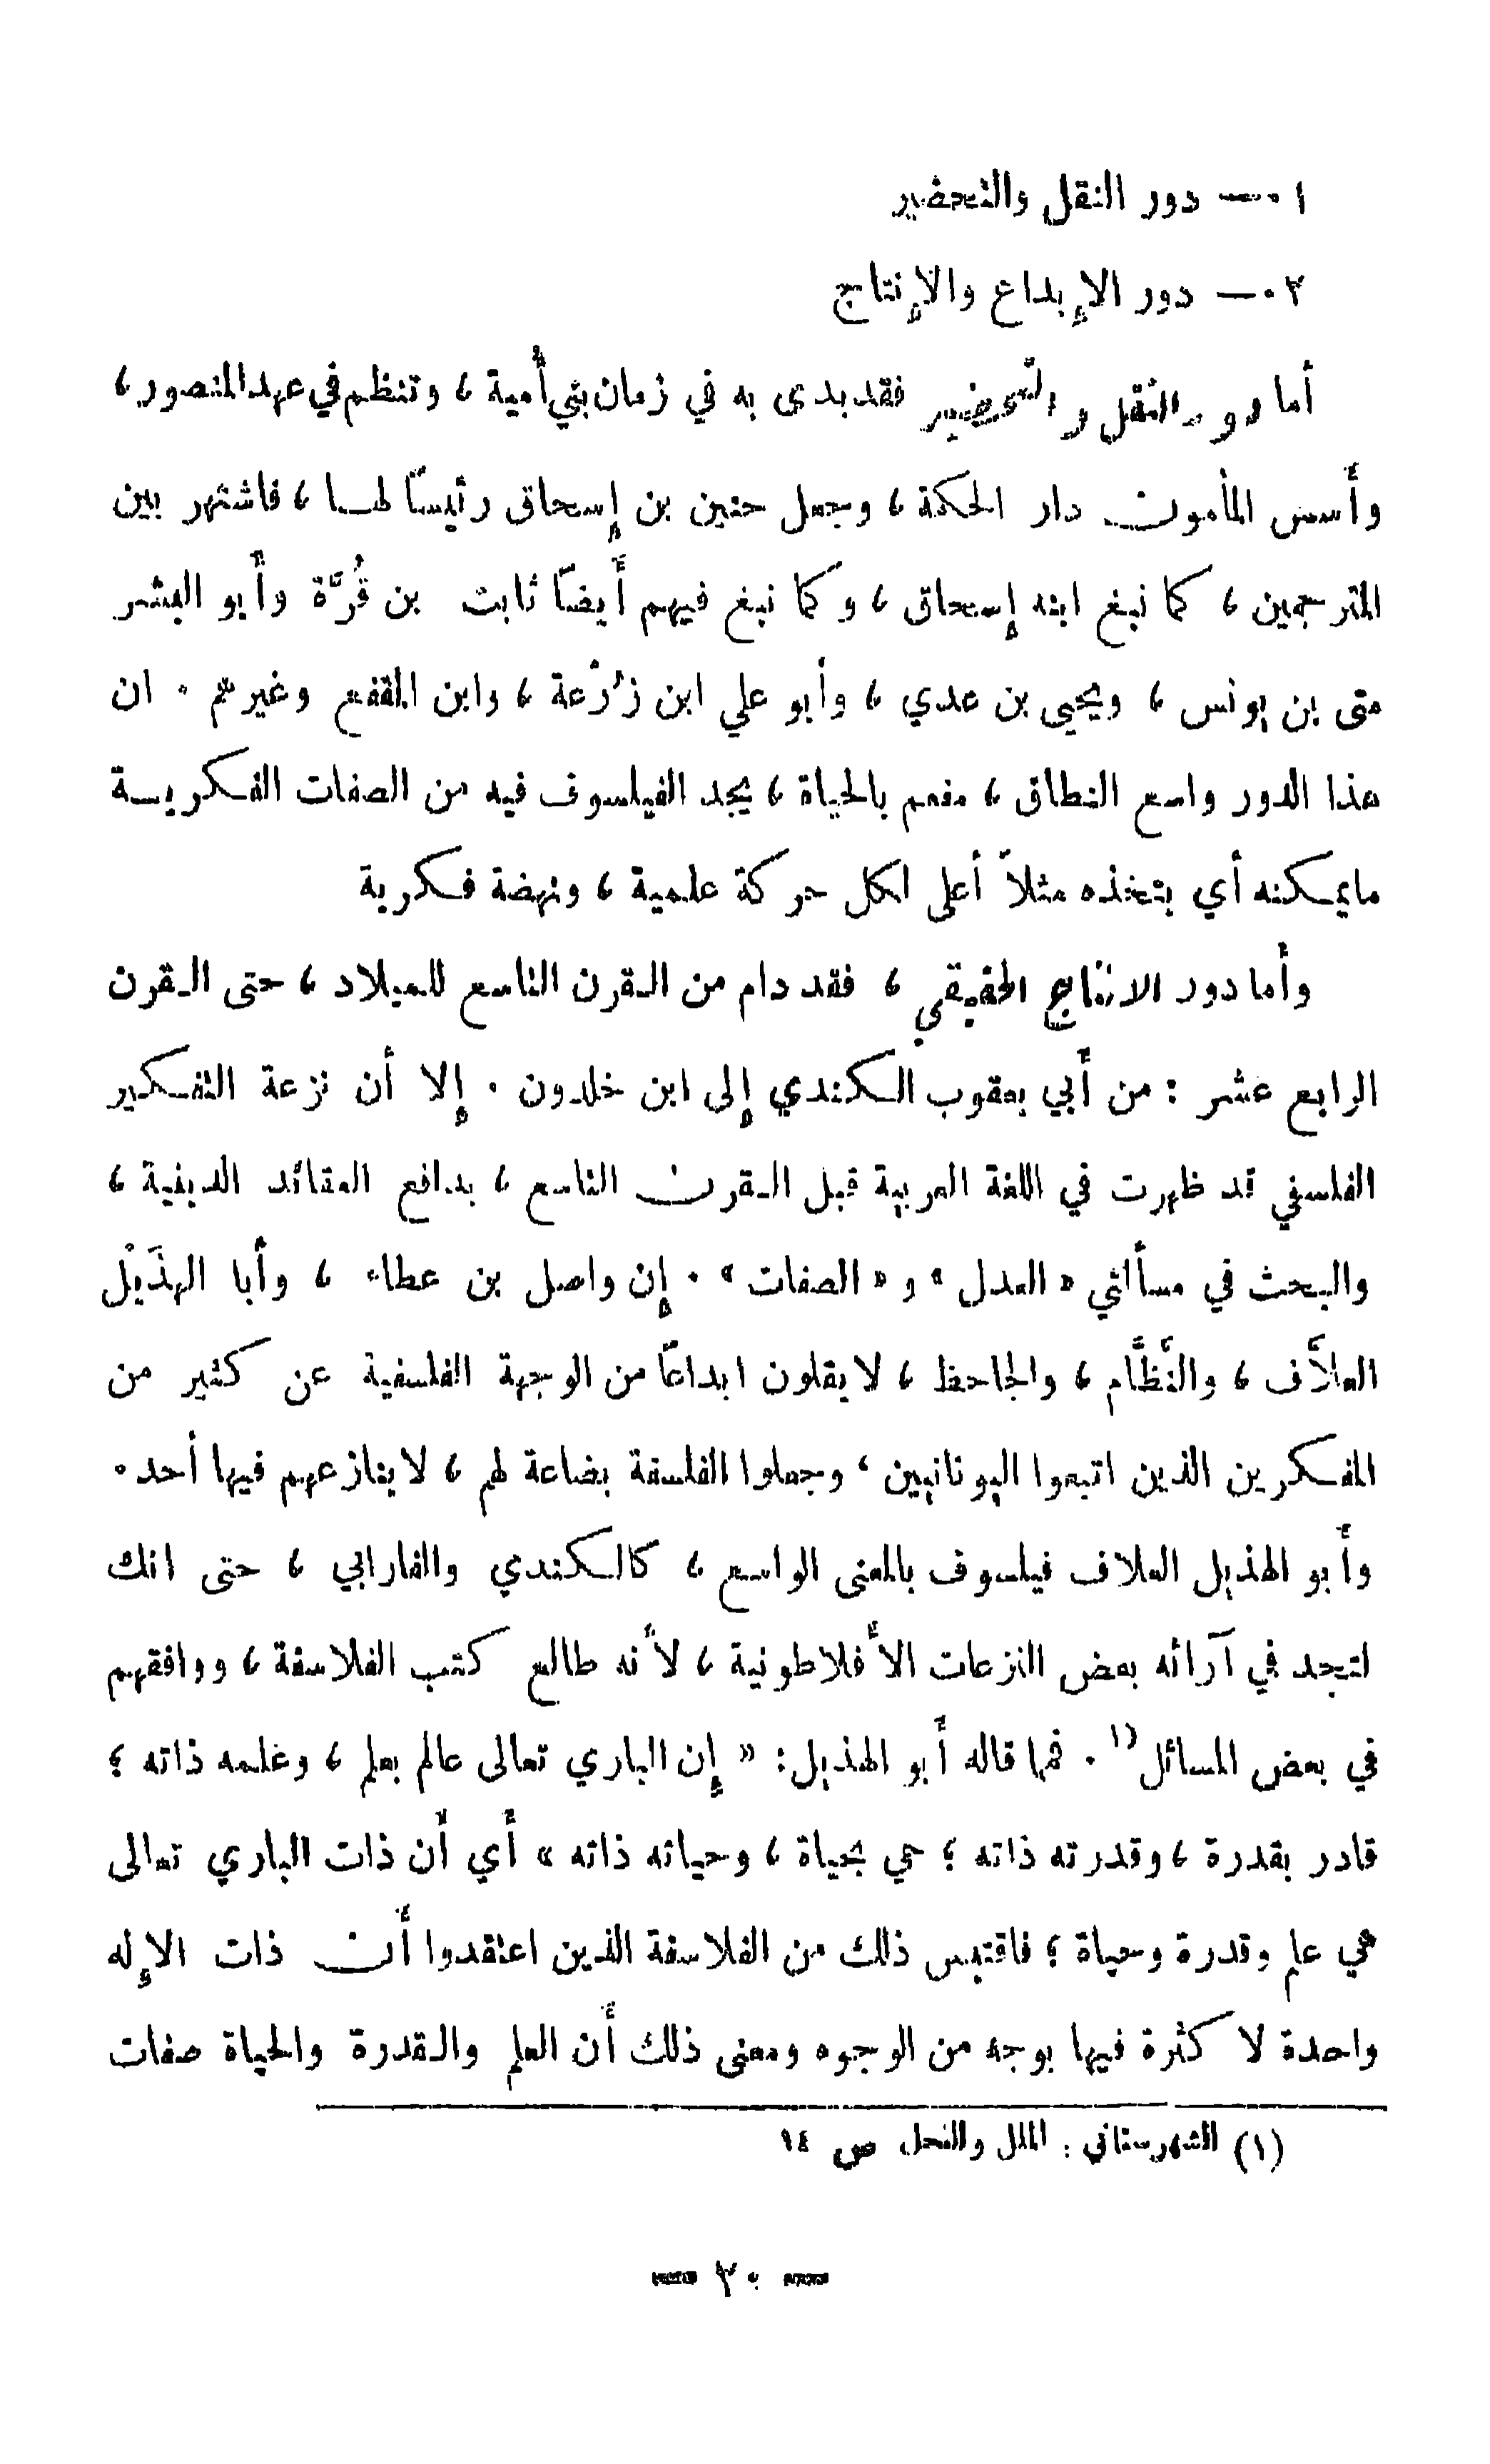 ١٠ — دور النقل والتحضير
٢٠ — دور الإبداع والإنتاج
أما دور النقل والتحضير فقد بدى به في زمان بني أمية ، وتنظم في عهد المنصور ،
وأسس المأمون دار الحكمة ، وجعل حنين بن إسحاق رئيسًا لها ، فاشتهر بين
المترجمين ، كما نبغ ابنه إسحاق ، وكما نبغ فيهم أيضًا ثابت بن قُرَّة وأبو البشر
متى بن يونس ، ويحيى بن عدي ، وأبو علي ابن زُرْعة ، وابن المقفع وغيرهم . ان
هذا الدور واسع النطاق ، مفعم بالحياة ، يجد الفيلسوف فيه من الصفات الفكرية
ما يمكنه أي يتخذه مثلاً أعلى لكل حركة علمية ، ونهضة فكرية
وأما دور الانتاج الحقيقي ، فقد دام من القرن التاسع للميلاد ، حتى القرن
الرابع عشر : من أبي يعقوب الكندي إلى ابن خلدون . إلا أن نزعة التفكير
الفلسفي قد ظهرت في اللغة العربية قبل القرن التاسع ، بدافع العقائد الدينية ،
والبحث في مسألتي « العدل » و « الصفات » . إن واصل بن عطاء ، وأبا الهذَيْل
العلاَّف ، والنَّظَّام ، والجاحظ ، لا يقلون ابداعًا من الوجهة الفلسفية عن كثير من
المفكرين الذين اتبعوا اليونانيين ، وجعلوا الفلسفة بضاعة لهم ، لا ينازعهم فيها أحد .
وأبو الهذيل العلاف فيلسوف بالمعنى الواسع ، كالكندي والفارابي ، حتى انك
لتجد في آرائه بعض النزعات الأفلاطونية ، لأنه طالع كتب الفلاسفة ، ووافقهم
في بعض المسائل (١ . فمما قاله أبو الهذيل : « إن الباري تعالى عالم بعلم ، وعلمه ذاته ؛
قادر بقدرة ، وقدرته ذاته ؛ حي بحياة ، وحياته ذاته » أي أن ذات الباري تعالى
هي علم وقدرة وحياة ؛ فاقتبس ذلك من الفلاسفة الذين اعتقدوا أن ذات الإله
واحدة لا كثرة فيها بوجه من الوجوه ومعنى ذلك أن العلم والقدرة والحياة صفات
(١) الشهرستاني : الملل والنحل ص ١٤
— ٣٠ —